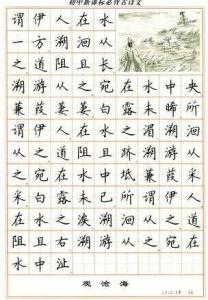 初中新课标必背古诗文
谓伊人在水
一方溯洄从
之道阻且长
溯游从之宛在水中央
蒹葭萋萋白露未晞所
谓伊人在水之湄溯洄
从之道阻且跻溯游从
之宛在水中坻蒹葭采
采白露未已所谓伊人
在水之涘溯洄从之道
阻且右溯游从之宛在
水中沚
观沧海